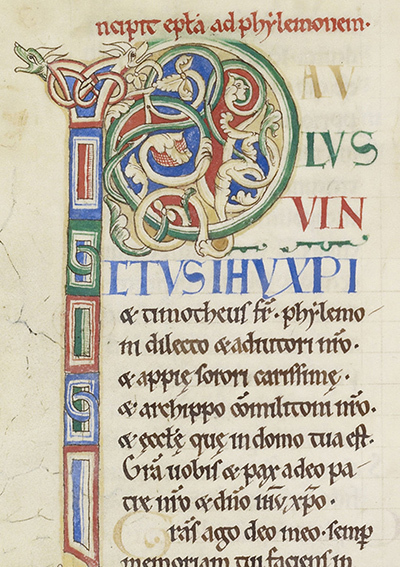 ncipit epła ad phylemonem·
P AV
LVS
VIN
CTVS IHV XPI
& timotheus fr̄· phylemo-
ni dilecto & adiutori nr̄o·
& appię sorori carissimę·
& archippo c̄ōmilitoni nr̄o·
& ęcclę quę in domo tua est·
Gr̄a uobis & pax a deo pa-
tre nr̄o & dn̄o ih̄u xp̄o·
Gr̄as ago deo meo· semp̄
memoriam tui faciens in